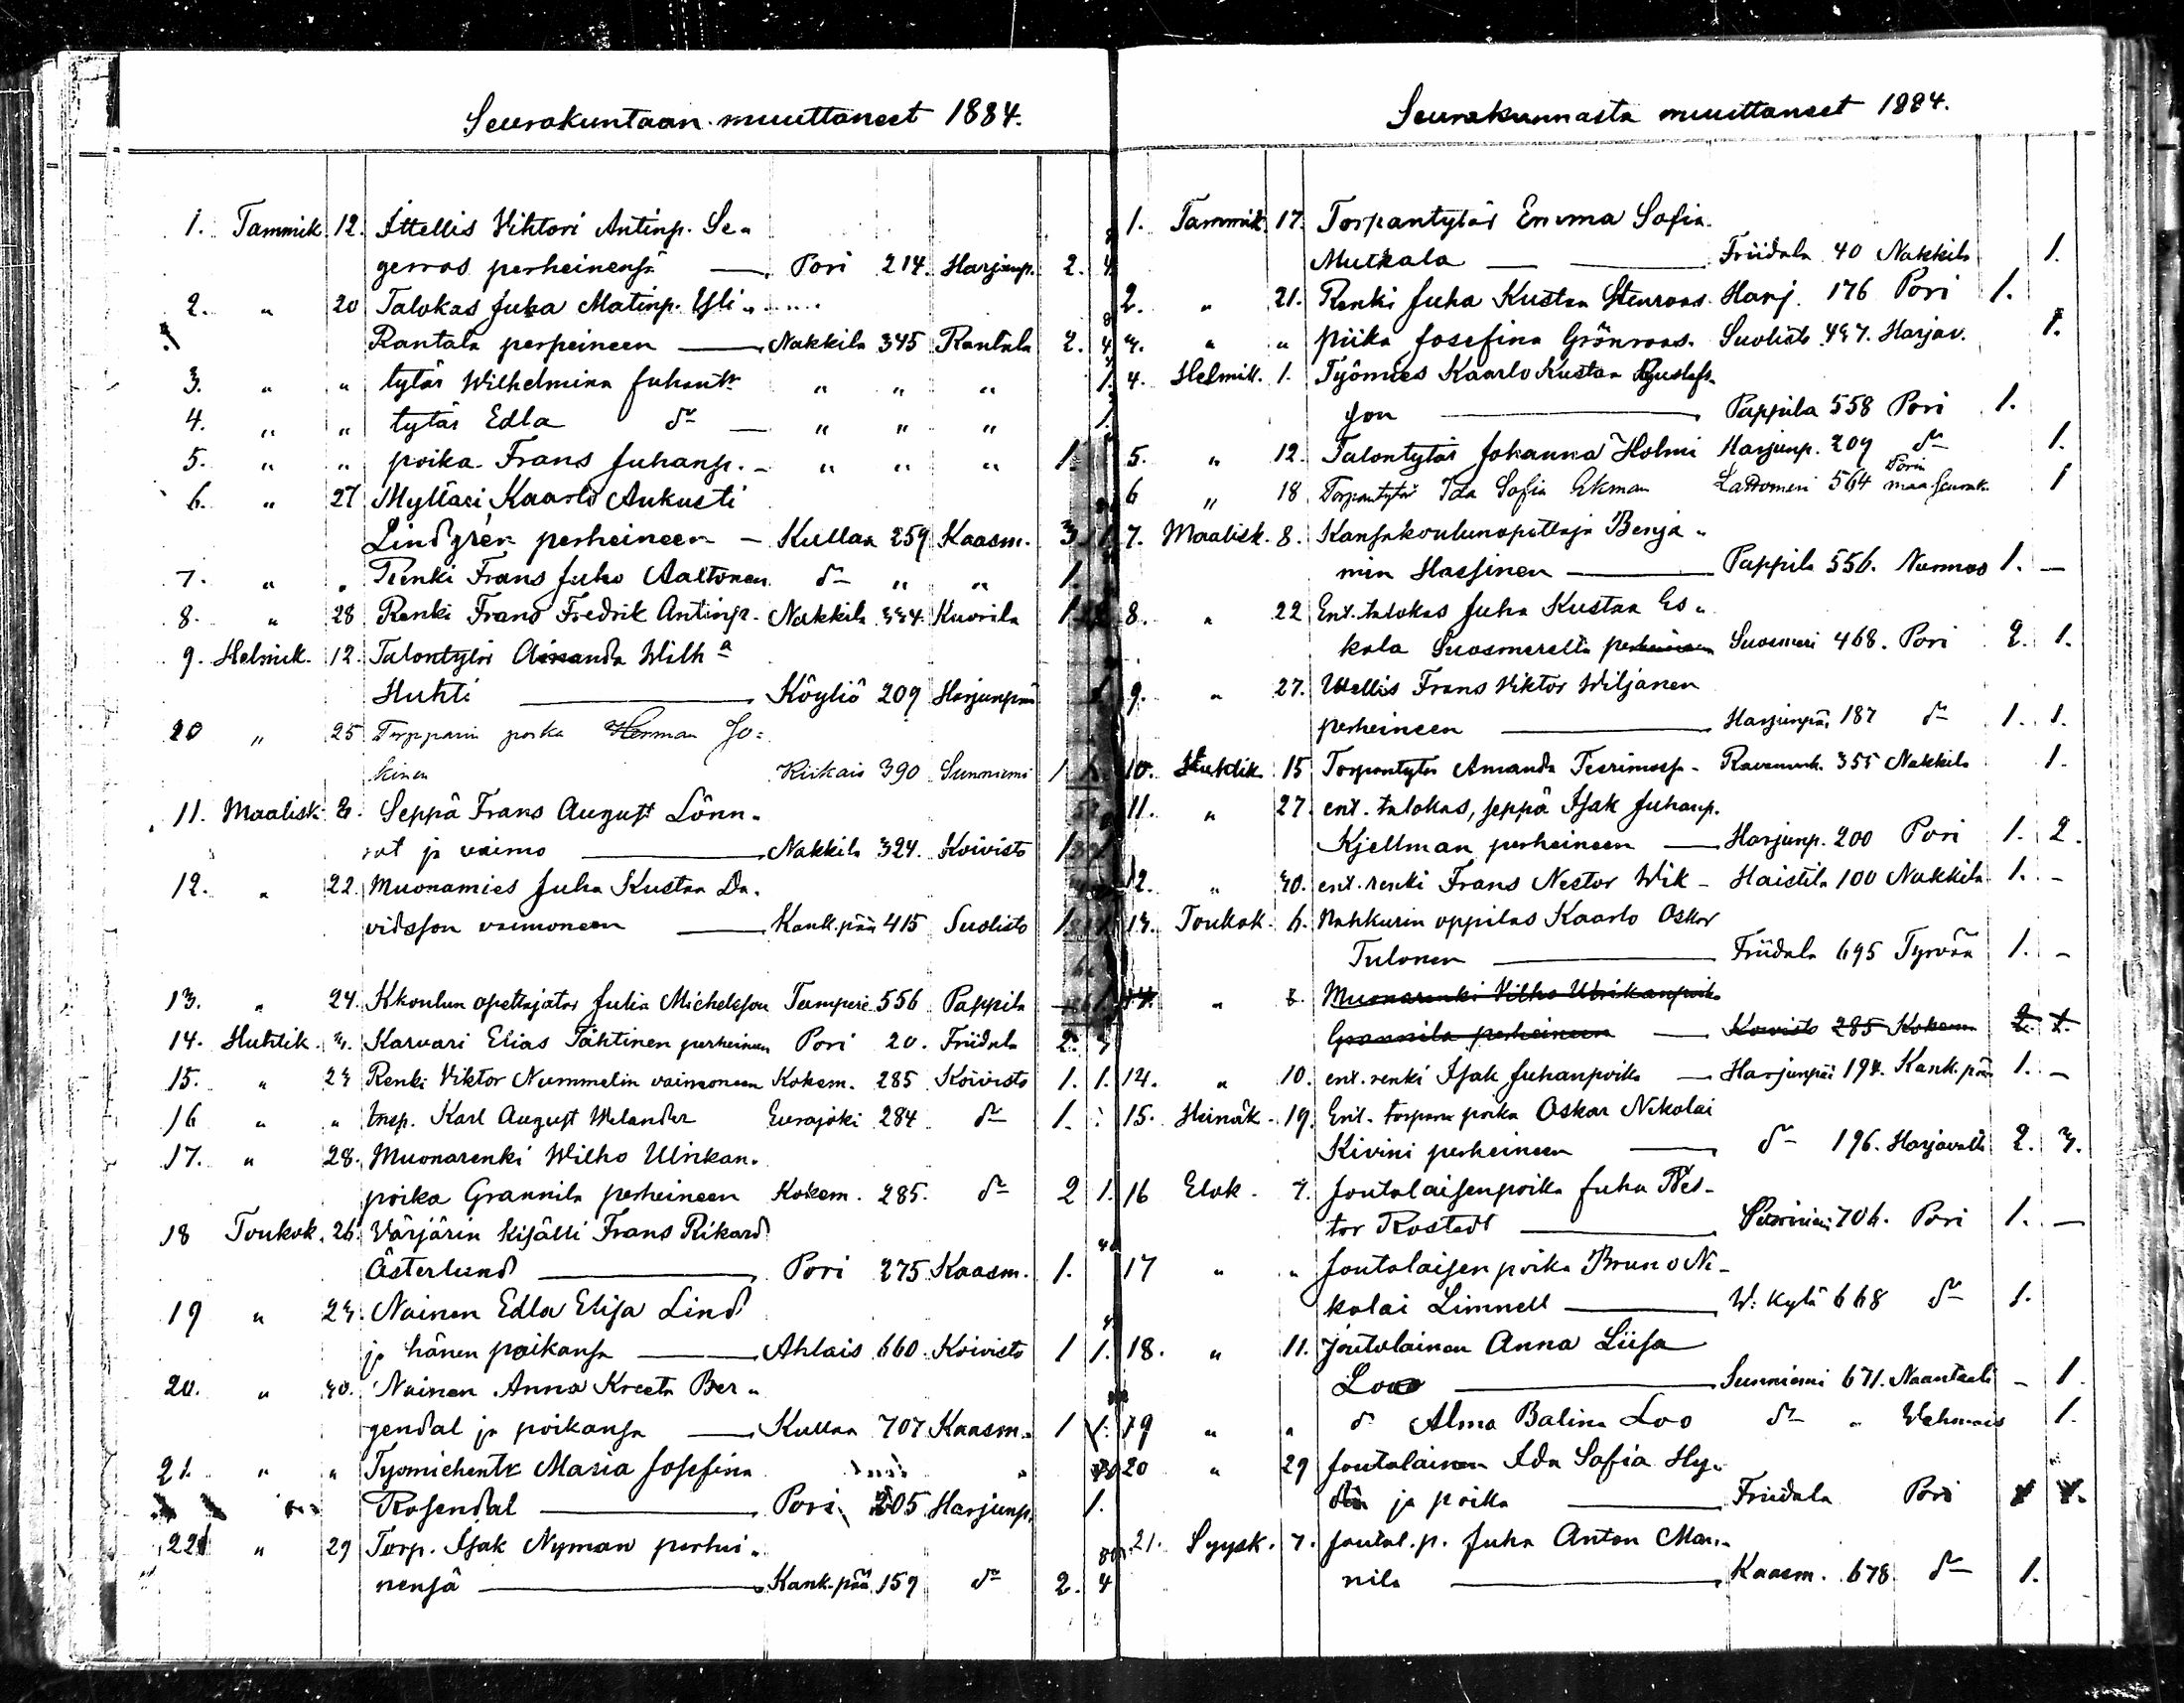 Seurakuntaan muuttaneet 1884.
1. Tammik. 12. Ittellis Vihtori Antinp. Se„
gerros perheinensä — Pori 214. Harjunp. 2. 4
2. „ 20 Talokas Juha Matinp. Yli „
Rantala perheineen — Nakkila 345 Rantala 2. 4
3. „ „ tytär Wilhelmina Juhantr „ „ „ 1.
4. „ „ tytär Edla dº — „ „ „ 1.
5. „ „ poika Frans Juhanp. – „ „ „ 1.
6. „ 27 Mylläri Kaarlo Aukusti
Lindgrén perheineen – Kullaa 259 Kaasm. 3. 1.
7. „ „ Renki Frans Juho Aaltonen dº „ „ 1.
8. „ 28 Renki Frans Fredrik Antinp. Nakkila 334. Kuorila 1.
9. Helmik. 12. Talontytär Amanda Wilhª
Huhti — Köyliö 209 Harjunpää
20 „ 25 Torpparin poika Herman Jo=
kinen Kiikais 390 Sunniemi 1
11. Maalisk. 8. Seppä Frans August Lönn„
rot ja vaimo — Nakkila 324. Koivisto 1
12. „ 22. Muonamies Juha Kustaa Da„
vidsson vaimoneen — Kank.pää 415 Suolisto 1.
13. „ 24. Kkoulun opettajatar Julia Michelsson Tampere 556 Pappila – 1.
14. Huhtik. 3. Karvari Elias Tähtinen perheineen Pori 20. Friidala 2. 3
15. „ 23 Renki Viktor Nummelin vaimoneen Kokem. 285 Koivisto 1. 1.
16 „ „ Insp. Karl August Welander Eurajoki 284 dº 1.
17. „ 28. Muonarenki Wilho Ulrikan„
poika Grannila perheineen Kokem. 285. dº 2 1.
18 Toukok. 26. Värjärin kisälli Frans Rikard
Österlund — Pori 275 Kaasm. 1.
19 „ 23. Nainen Edla Elisa Lind
ja hänen poikansa — Ahlais 660. Koivisto 1 1.
20. „ 30. Nainen Anna Kreeta Ber„
gendal ja poikansa — Kullaa 707 Kaasm. 1 1.
21. „ „ Tyomiehentr Maria Josefina
Rosendal — Pori 205 Harjunp. 1.
22 „ 29 Torp. Isak Nyman perhei„
nensä — Kank.pää 159 dº 2. 4
Seurakunnasta muuttaneet 1884.
1. Tammik. 17. Torpantytär Emma Sofia
Mutkala — Friidala 40 Nakkila 1.
2. „ 21. Renki Juha Kustaa Stenroos Harj. 176 Pori 1.
3. „ „ piika Josefina Grönroos. Suolisto 437. Harjav. 1.
4. Helmik. 1. Työmies Kaarlo Kustaa Gustafs„
son — Pappila 558 Pori 1.
5. „ 12. Talontytär Johanna Holmi Harjunp. 209 dº 1.
6 „ 18 Torpantytär Ida Sofia Ekman Lattomeri 564 Porin maa seurak. 1
7. Maalisk. 8. Kansakoulunopettaja Benja„
min Hassinen — Pappila 556. Nurmes 1. –
8. „ 22 Ent. talokas Juha Kustaa Es„
kola Suosmerelta perheineen Suosmeri 468. Pori 2. 1.
9. „ 27. Ittellis Frans Viktor Wiljanen
perheineen — Harjunpää 187 dº 1. 1.
10. Huhtik. 15 Torpantytär Amanda – Ravanink. 355 Nakkila 1.
11. „ 27. ent. talokas, seppä Isak Juhanp.
Kjellman perheineen — Harjunp. 200 Pori 1. 2.
12. „ 30. ent. renki Frans Nestor Wik – Haistila 100 Nakkila 1. –
13. Toukok. 6. Nahkurin oppilas Kaarlo Oskar
Tulonen — Friidala 695 Tyrvää 1. –
14. „ 8. Muonarenki Vilho Ulrikanpoika
Grannila perheineen — Koivisto 285 Kokem. 2. 1.
14. „ 10. ent. renki Isak Juhanpoika — Harjunpää 194. Kank.pää 1. –
15. Heinäk. 19. Ent. torparin poika Oskar Nikolai
Kivini perheineen — dº 196. Harjavalta 2. 3.
16 Elok. 7. Joutolaisenpoika Juha Nes–
tor Rostedt — Sunniemi 706. Pori 1. —
17 „ „ Joutolaisen poika Bruno Ni–
kolai Limnell — W: Kylä 668 dº 1.
18. „ 11. joutolainen Anna Liisa
Loo — Sunniemi 671. Naantali – 1.
19 „ „ dº Alma Balina Loo dº „ Vehmais 1.
20 „ 29 Joutolainen Ida Sofia Hy„
dén ja poika — Friidala Pori 1 1.
21. Syysk. 7. Joutol.p. Juha Anton Man„
nila — Kaasm. 678 dº 1.